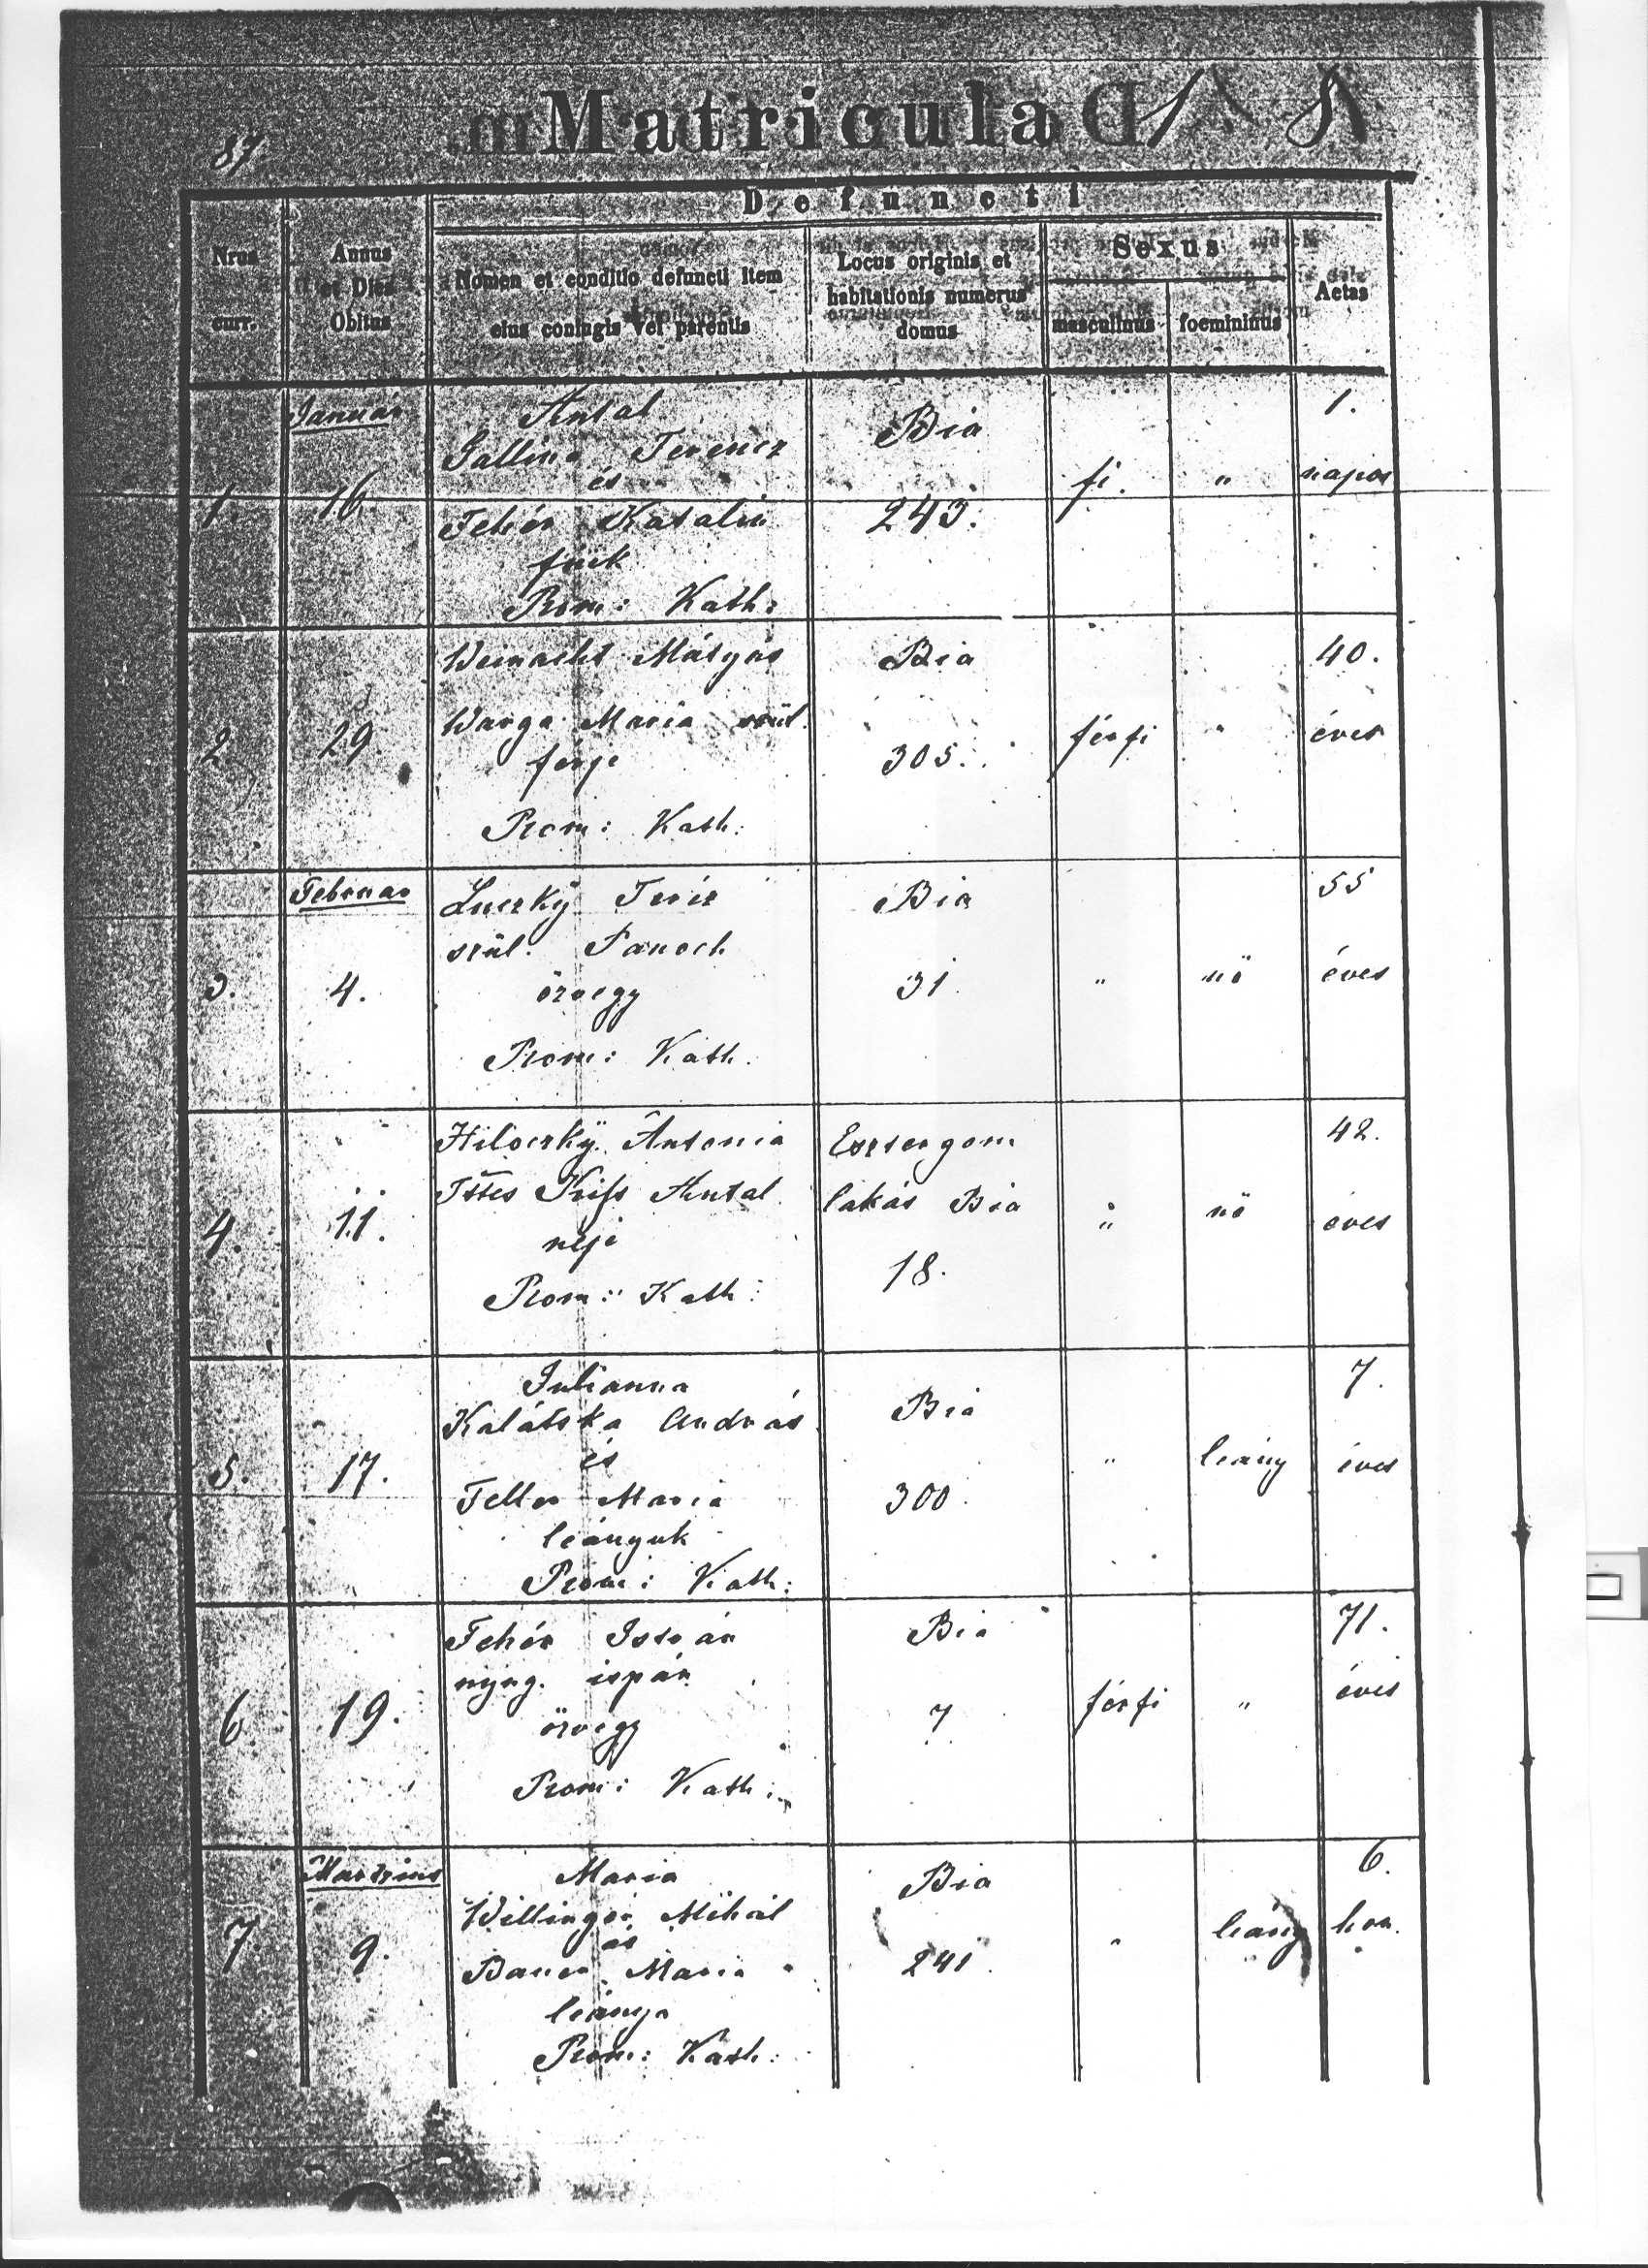 87
Matricula
Defuncti
Nrus curr.
Annus et Dies Obitus
Nomen et conditio defuncti item eius coniugis vel parentis
Locus originis et habitationis numerus domus
Sexus
masculinus
foemininus
Aetas
Január
1.
16.
Antal
Gallina Ferencz
és
Fehér Katalin
fiuk
Rom: Kath:
Bia
243.
fi.
"
1.
napos
2.
29.
Weinacht Mátyás
Warga Maria szül.
ferje
Rom: Kath:
Bia
305.
férfi
"
40.
éves
Februar
3.
4.
Teréz
szül. Panoch
özvegy
Rom: Kath.
Bia
31.
"
nö
55
éves
4.
11.
Antonia
Kiss Antal
neje
Rom: Kath:
Esztergom
lakás Bia
18.
"
nö
42.
éves
5.
17.
Julianna
Kalátska András
és
Feller Maria
leányuk
Rom: Kath:
Bia
300.
"
leány
7.
éves
6.
19.
Fehér István
nyug. ispán
özvegy
Rom: Kath:
Bia
7
férfi
"
71.
éves
Martzius
7
9.
Maria
Willinger Mihál
és
Bauer Maria
leánya
Rom: Kath:
Bia
241.
"
leány
6.